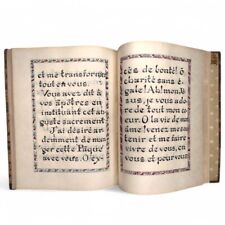 et me transformer
tout en vous.
Vous avez dit à
vos apôtres en
instituant cet au-
guste sacrement
J'ai désiré ar-
demment de man-
ger cette Pâque
avec vous. O ex-
cès de bonté! ô
charité sans é-
gale! Ah! mon Jé-
sus, je vous ado-
re de tout mon
cœur. O la vie de mon
âme! venez me sou-
tenir et me faire
vivre de vous, en
vous et pour vous